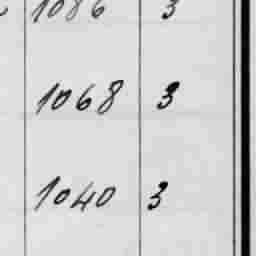 1086 3
1068 3
1040 3